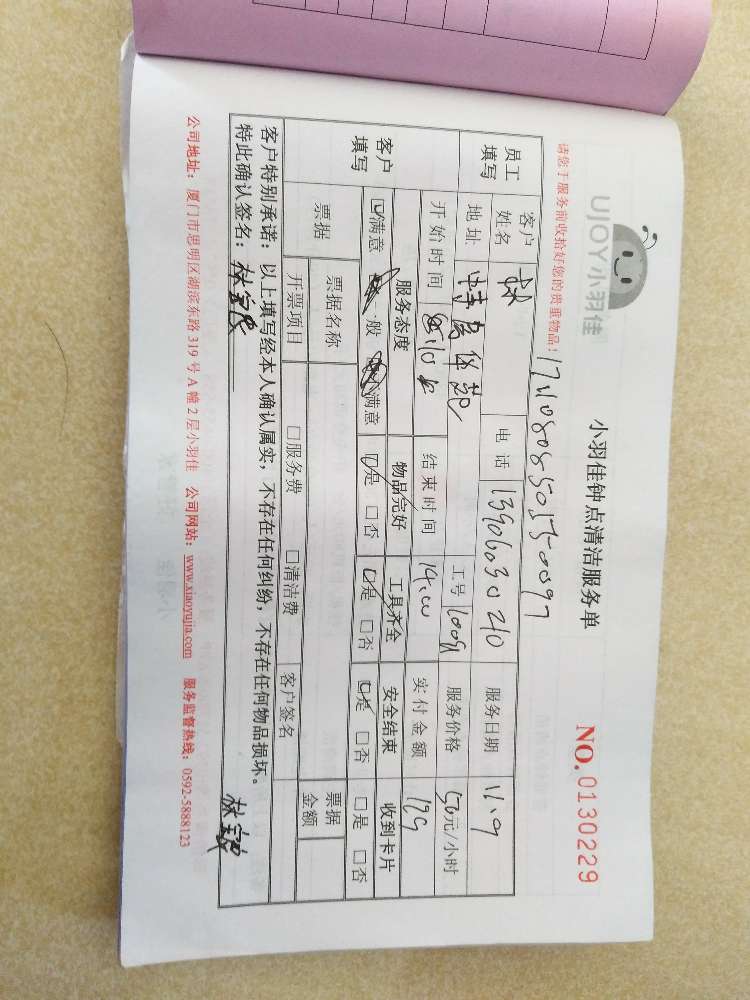 UJOY小羽佳
小羽佳钟点清洁服务单
NO.0130229
请您于服务前收拾好您的贵重物品！
员工填写 客户姓名 林 电话 13906030210 服务日期 11.9
地址 工号 1009 服务价格 50元/小时
开始时间 结束时间 14.00 实付金额 129
客户填写 服务态度 物品完好 工具齐全 安全结束 收到卡片
☑满意 一般 满意 ☑是 □否 ☑是 □否 ☑是 □否 □是 □否
票据 票据名称 票据金额
开票项目 □服务费 □清洁费 客户签名
客户特别承诺：以上填写经本人确认属实，不存在任何纠纷，不存在任何物品损坏。
特此确认签名：
公司地址：厦门市思明区湖滨东路 319 号 A 幢 2 层小羽佳 公司网站：www.xiaoyujia.com 服务监督热线：0592-5888123